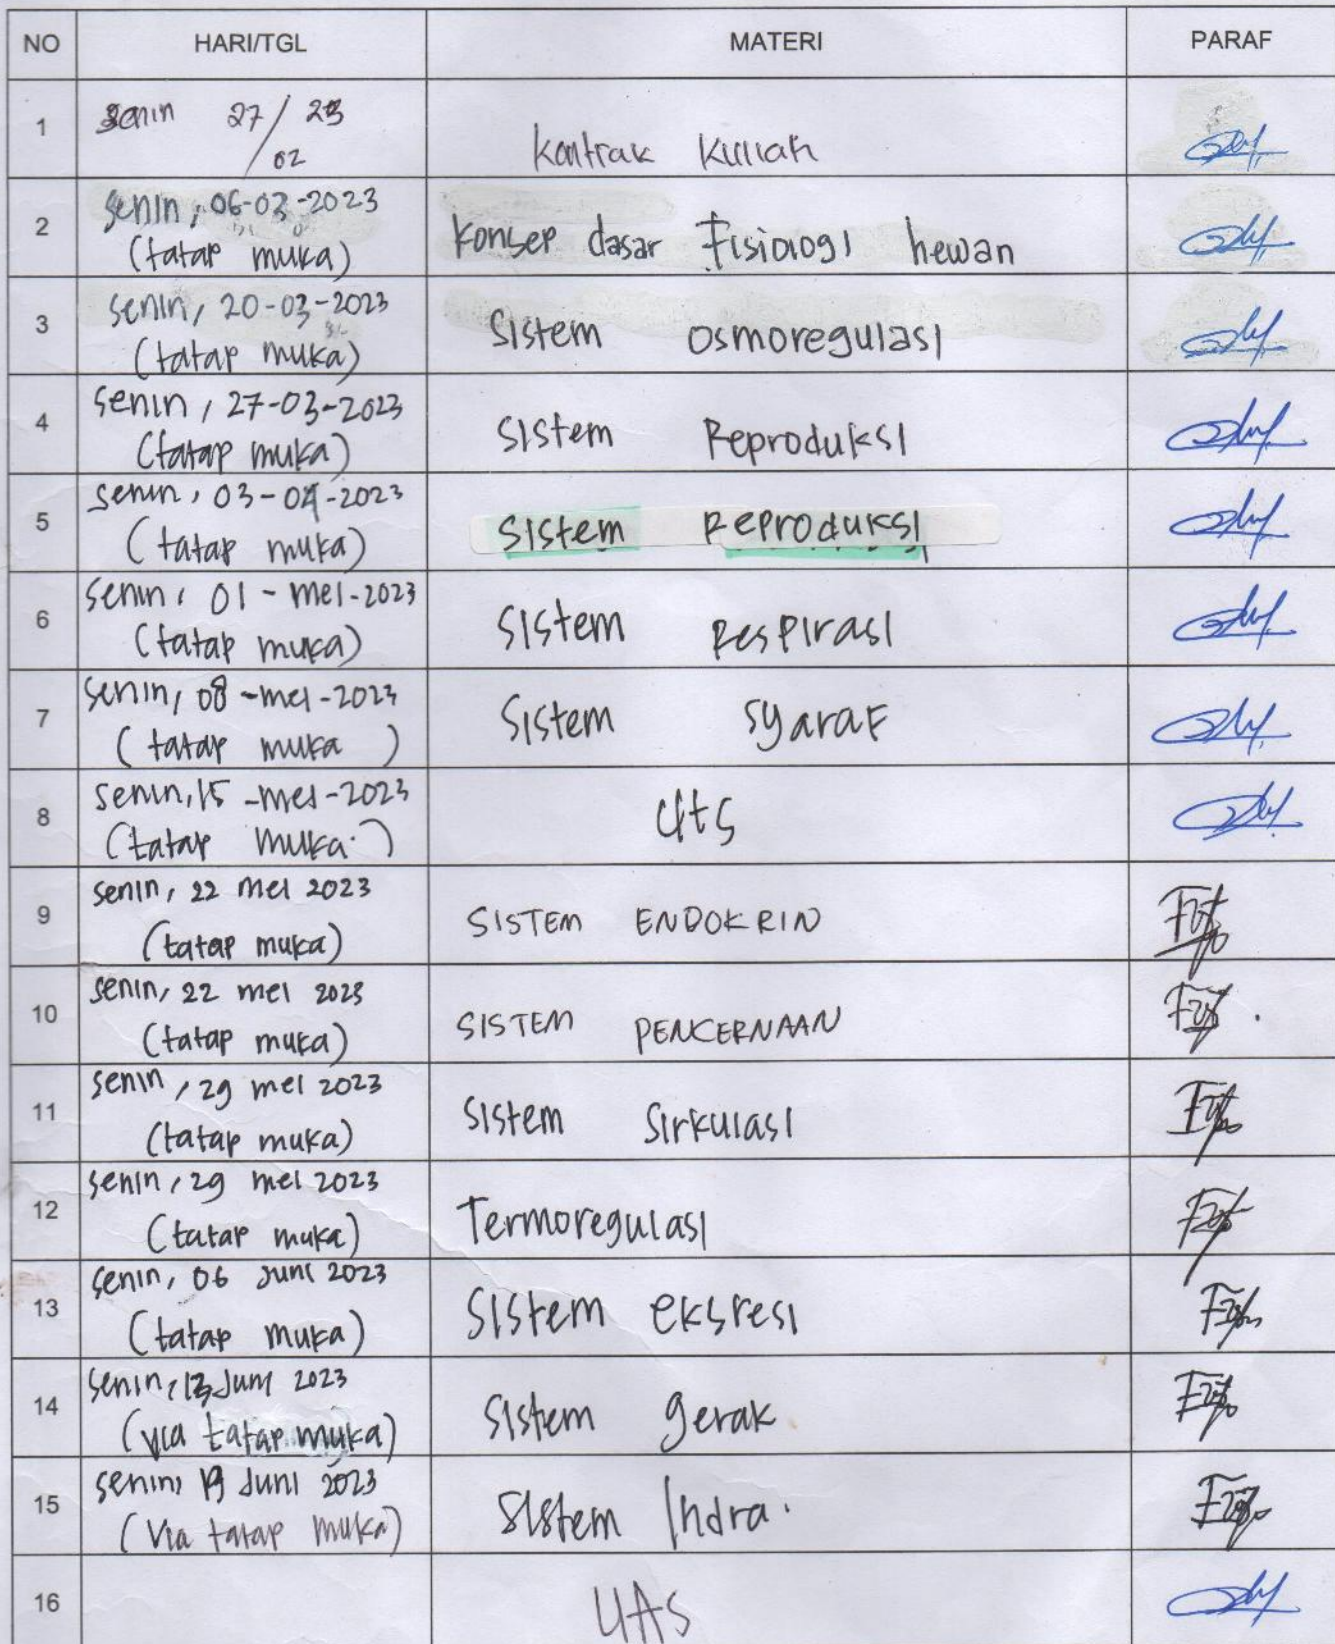 NO HARI/TGL MATERI PARAF
1 senin 27/02 23 kontrak kuliah
2 senin, 06-03-2023 (tatap muka) konsep dasar Fisiologi hewan
3 senin, 20-03-2023 (tatap muka) Sistem osmoregulasi
4 senin, 27-03-2023 (tatap muka) Sistem Reproduksi
5 senin, 03-04-2023 (tatap muka) Sistem Reproduksi
6 senin, 01 - mei - 2023 (tatap muka) Sistem Respirasi
7 senin, 08 - mei - 2023 (tatap muka) Sistem syaraf
8 senin, 15 - mei - 2023 (tatap muka) Uts
9 senin, 22 mei 2023 (tatap muka) SISTEM ENDOKRIN
10 senin, 22 mei 2023 (tatap muka) SISTEM PENCERNAAN
11 senin, 29 mei 2023 (tatap muka) Sistem Sirkulasi
12 senin, 29 mei 2023 (tatap muka) Termoregulasi
13 senin, 06 Juni 2023 (tatap muka) Sistem eksresi
14 senin, 13 Juni 2023 (via tatap muka) Sistem gerak
15 senin, 19 Juni 2023 (Via tatap muka) Sistem Indra.
16 UAS